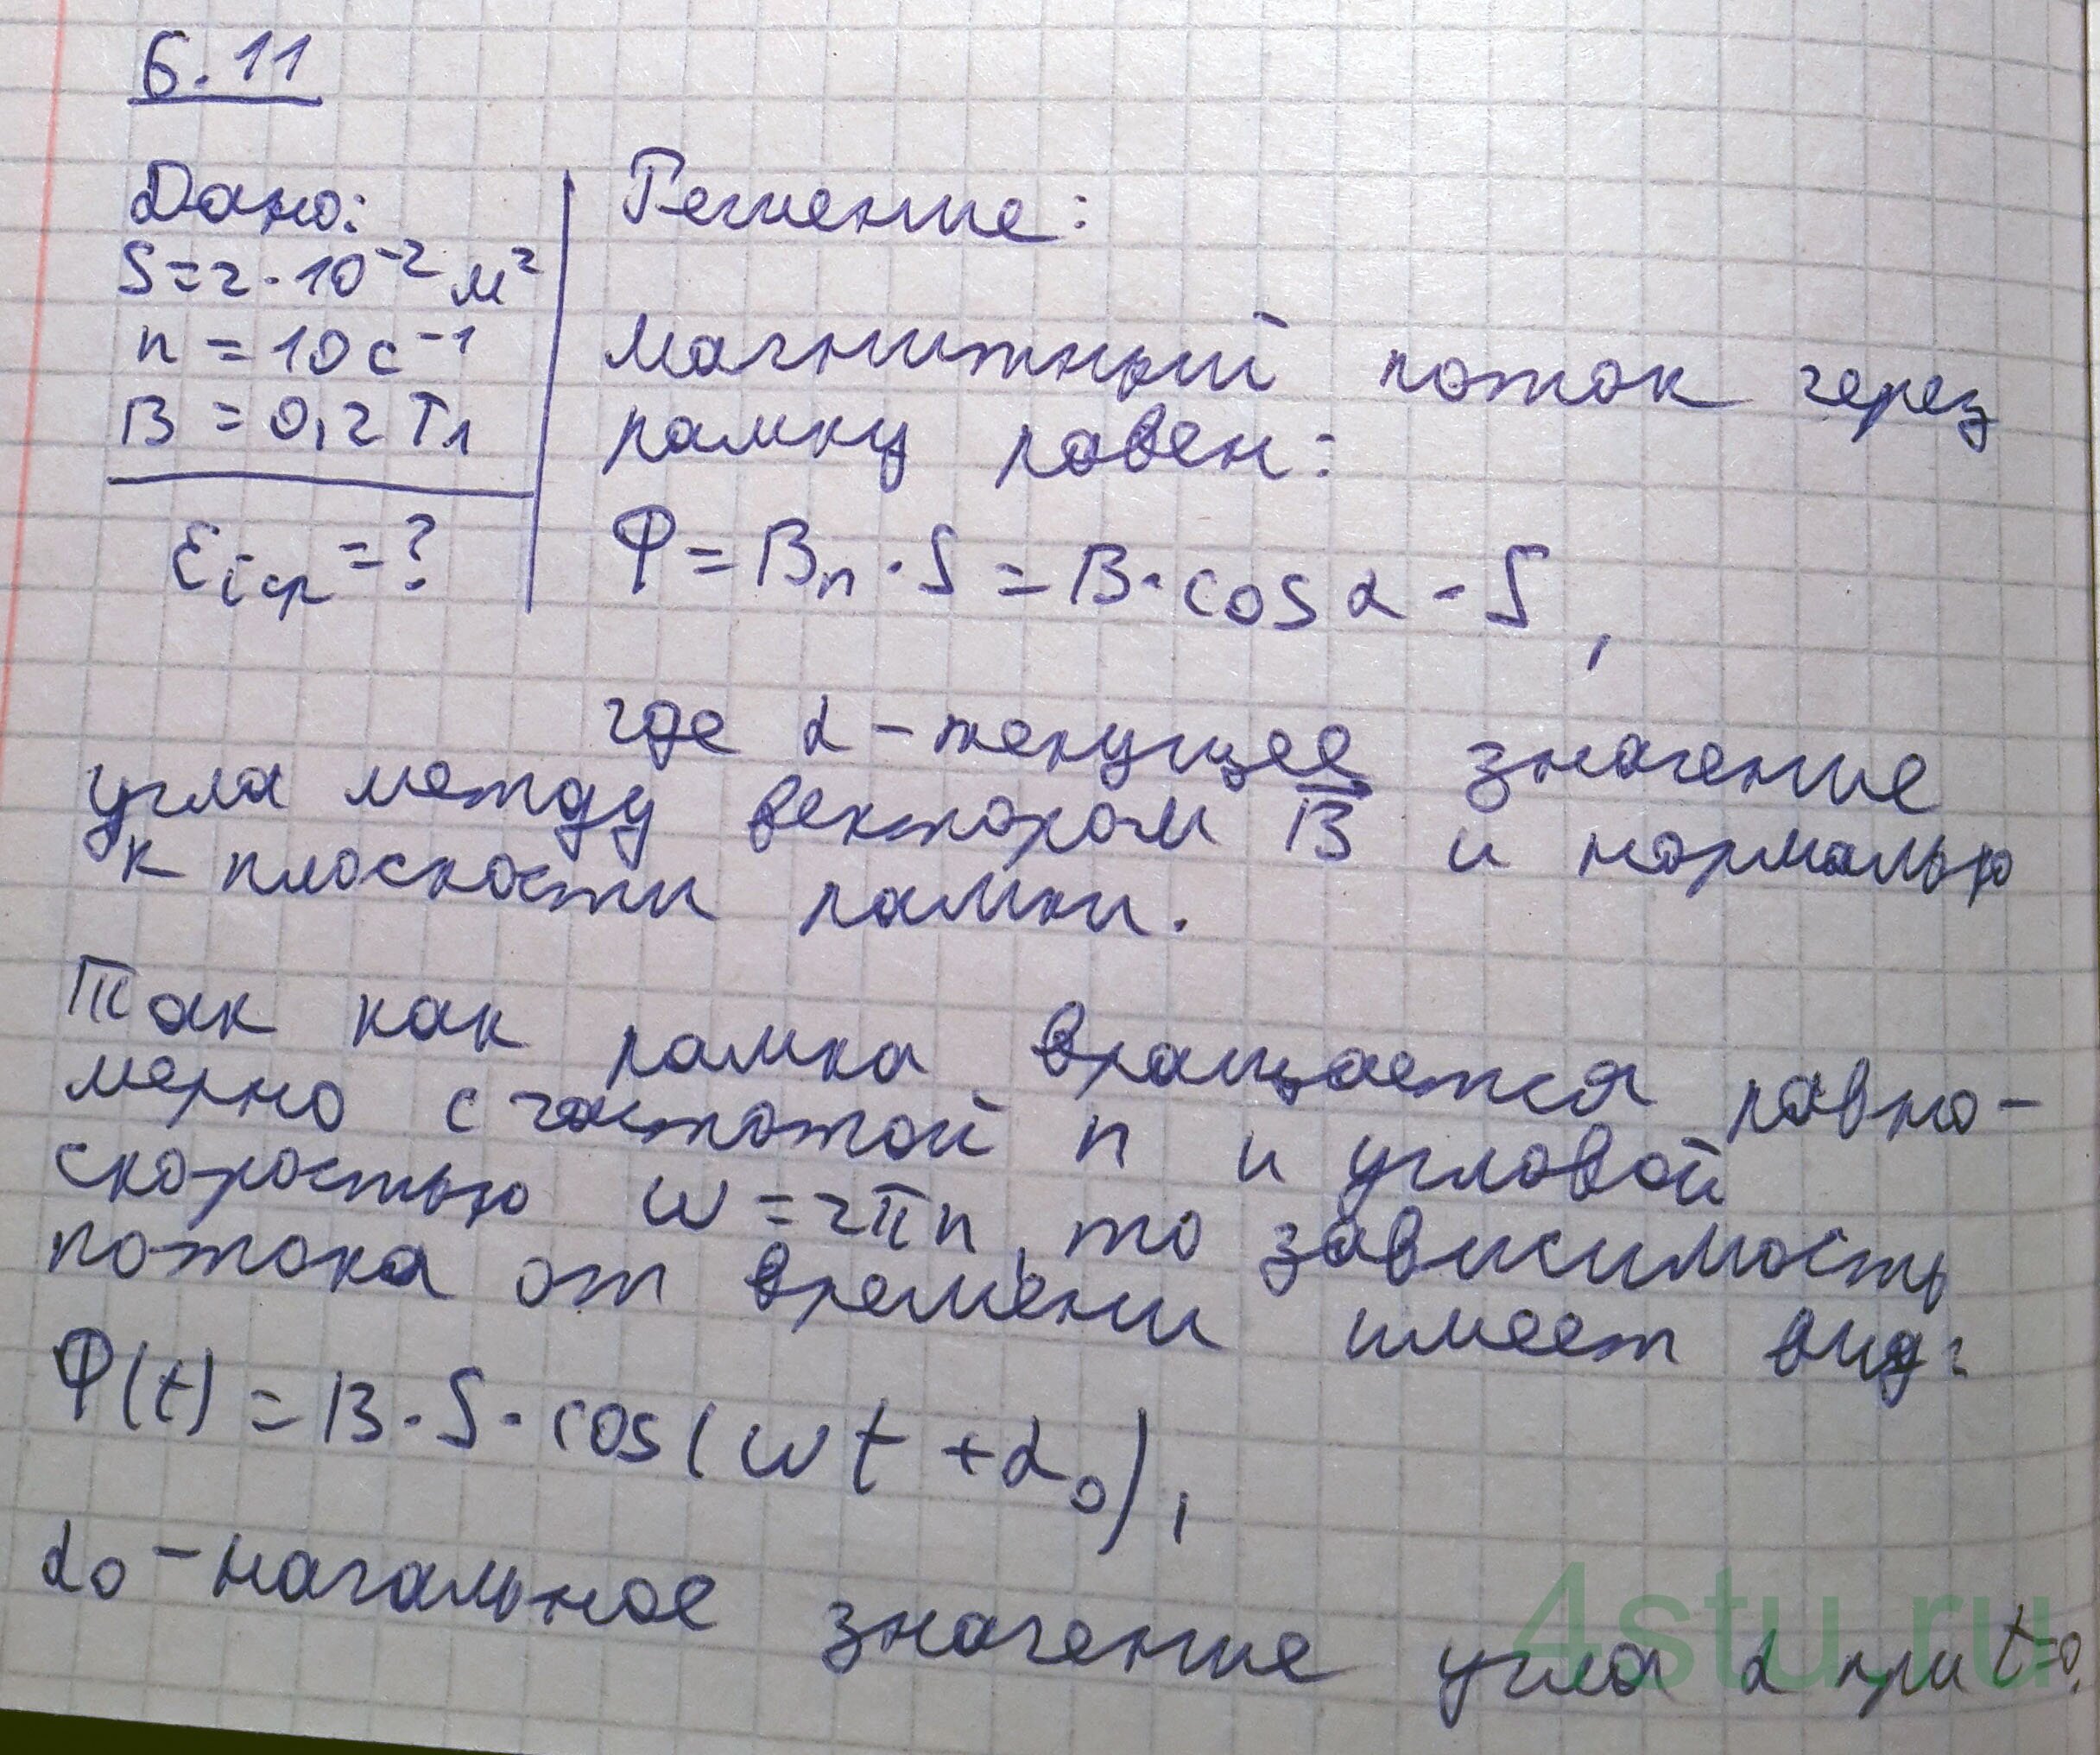 6.11
Дано:
S=2·10⁻² м²
n = 10 с⁻¹
B = 0,2 Тл
εᵢ ср = ?
Решение:
Магнитный поток через
рамку равен:
Φ = Bₙ · S = B · cos α · S ,
где α – текущее значение
угла между вектором B⃗ и нормалью
к плоскости рамки.
Так как рамка вращается равно-
мерно с частотой n и угловой
скоростью ω = 2πn, то зависимость
потока от времени имеет вид:
Φ(t) = B · S · cos(ωt + α₀),
α₀ – начальное значение угла α при t=0.
4stu.ru